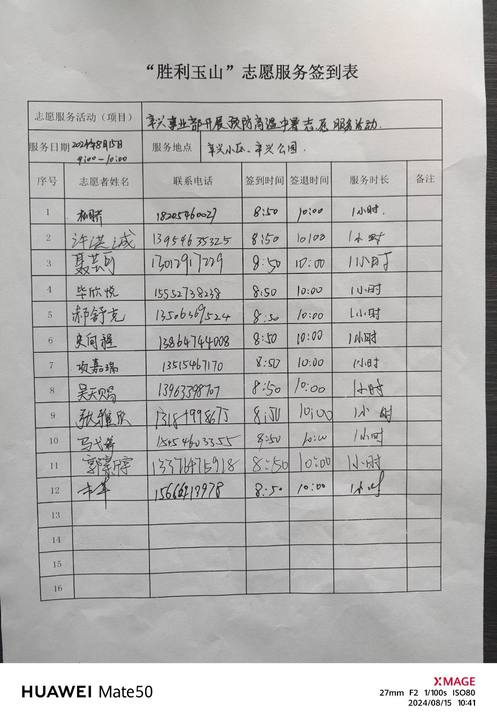 “胜利玉山”志愿服务签到表
志愿服务活动（项目） 辛兴事业部开展预防高温中暑志愿服务活动.
服务日期 2024年8月15日 9:00—10:00 服务地点 辛兴小区、辛兴公园.
序号 志愿者姓名 联系电话 签到时间 签退时间 服务时长 备注
1 8:50 10:00 1小时.
2 许洪诚 13954635325 8:50 10:00 1小时
3 聂芸可 8:50 10:00 1小时
4 毕欣悦 15552738238 8:50 10:00 1小时
5 郝舒克 13506369524 8:50 10:00 1小时
6 13864744008 8:50 10:00 1小时
7 项嘉瑞 13515467170 8:50 10:00 1小时
8 吴天赐 13963398707 8:50 10:00 1小时
9 张雅欣 13184998675 8:50 10:00 1小时
10 15454603355 8:50 10:00 1小时
11 13376475918 8:50 10:00 1小时
12 8:50 10:00 1小时
13
14
15
16
HUAWEI Mate50
XMAGE
27mm F2 1/100s ISO80
2024/08/15 10:41